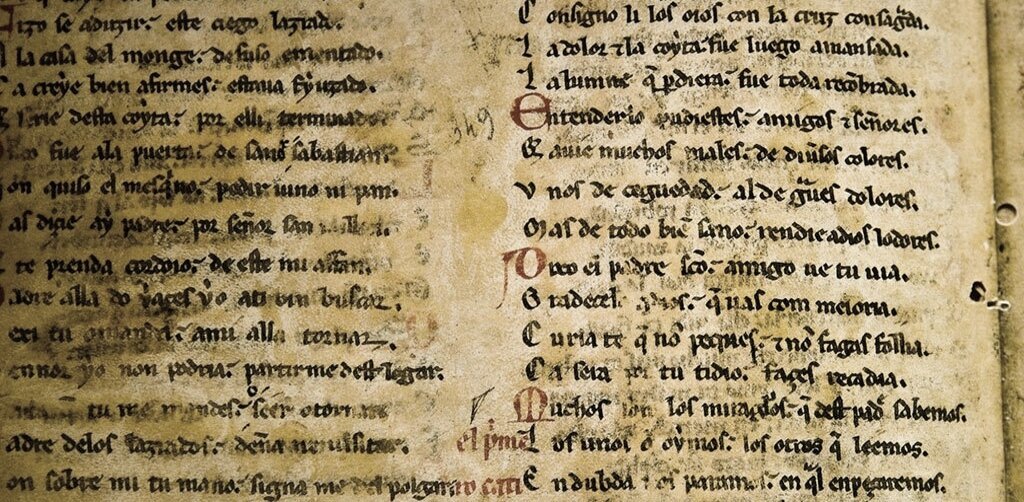 izo se aduzir: este ciego lazrado.
A la casa del monge: de suso ementado.
Ca creye bien afirmes: estaua fyuzado.
Serie desta coyta: por elli terminado
fue ala puerta: de sant sabastian.
on quiso el mesqno: pedir uino ni pan.
as dicie ay padre: por señor san
te prenda cordoio: de este mi affan.
adre alla do yazes yo ati uin buscar.
tu ami alla tornar.
ennor yo non podria: partirme dest logar.
tu me mandes: seer o tornar
adre delos lazrados: deña me uisitar.
on sobre mi tu mano: signa me del polgar
349
Consigno li los oios con la cruz consagrada.
La dolor ⁊ la coyta fue luego amansada.
La lumne q̃ pdiera: fue toda recobrada.
Entenderlo pudiestes: amigos ⁊ señores.
Q auie muchos males: de diuersos colores.
Vnos de ceguedad: al de q̃es dolores.
Mas de todo biẽ sano: rendie adios lodores.
Dixo el padre sc̃o: amigo ue tu uia.
Gradecel adios: q̃ uas con meioria.
Curia te q̃ nõ peques: ⁊ nõ fagas follia.
Ca sera por tu tidio: fazes recadia.
Muchos son los miraglos: q̃ dest pad̃ sabemos.
el pm̃e
Los unos õ oymos: los otros q̃ leemos.
En dubda nos paramos: en q̃l enpeçaremos.